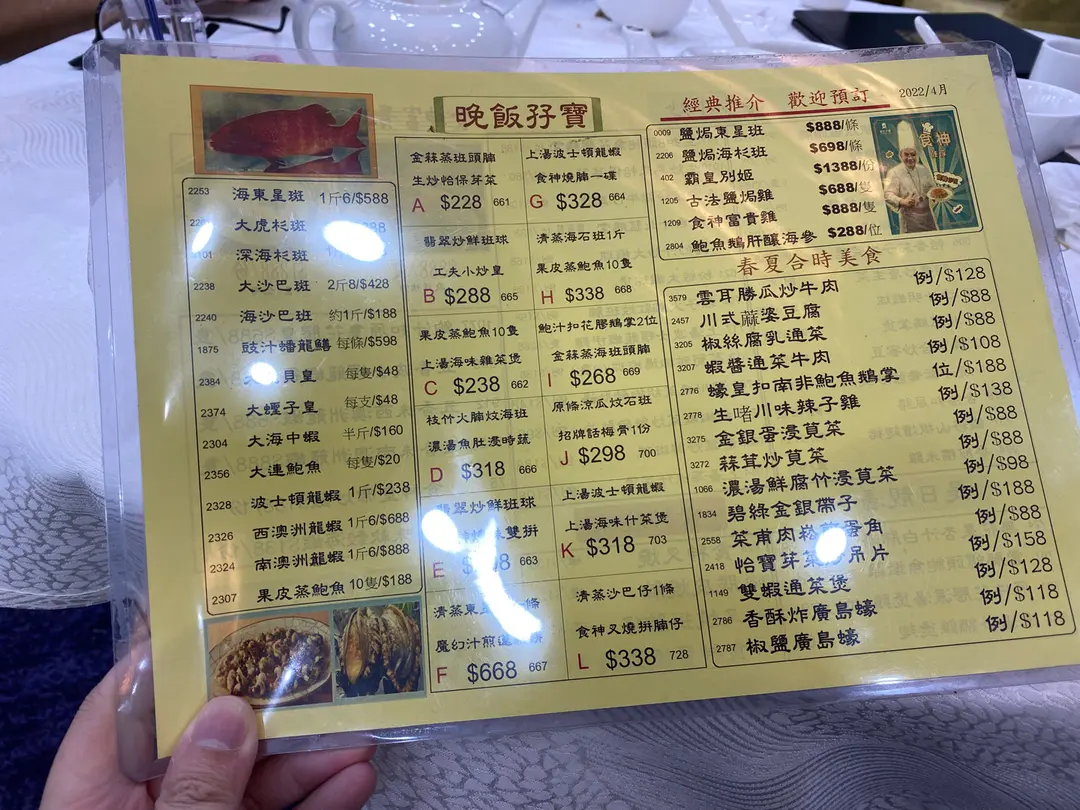 晚飯孖寶
經典推介 歡迎預訂
2022/4月
2253 海東星斑 1斤6/$588
大虎杉斑
深海杉斑
2238 大沙巴斑 2斤8/$428
2240 海沙巴斑 約1斤/$188
1875 豉汁蟠龍鱔 每條/$598
2384 貝皇 每隻/$48
2374 大蟶子皇 每支/$48
2304 大海中蝦 半斤/$160
2356 大連鮑魚 每隻/$20
2328 波士頓龍蝦 1斤/$238
2326 西澳洲龍蝦 1斤6/$688
2324 南澳洲龍蝦 1斤6/$888
2307 果皮蒸鮑魚 10隻/$188
金蒜蒸班頭腩
生炒怡保芽菜
A $228 661
翡翠炒鮮班球
工夫小炒皇
B $288 665
果皮蒸鮑魚10隻
上湯海味雜菜煲
C $238 662
枝竹火腩炆海班
濃湯魚肚浸時蔬
D $318 666
翡翠炒鮮班球
雙拼
E 663
清蒸東 條
魔幻汁煎
F $668 667
上湯波士頓龍蝦
食神燒腩一碟
G $328 664
清蒸海石班1斤
果皮蒸鮑魚10隻
H $338 668
鮑汁扣花膠鵝掌2位
金蒜蒸海班頭腩
I $268 669
原條涼瓜炆石班
招牌話梅骨1份
J $298 700
上湯波士頓龍蝦
上湯海味什菜煲
K $318 703
清蒸沙巴仔1條
食神叉燒拼腩仔
L $338 728
0009 鹽焗東星班 $888/條
2206 鹽焗海杉班 $698/條
402 霸皇別姬 $1388/份
1205 古法鹽焗雞 $688/隻
1209 食神富貴雞 $888/隻
2804 鮑魚鵝肝釀海參 $288/位
食神
春夏合時美食
3579 雲耳勝瓜炒牛肉 例/$128
2457 川式蔴婆豆腐 例/$88
3205 椒絲腐乳通菜 例/$88
3207 蝦醬通菜牛肉 例/$108
2776 蠔皇扣南非鮑魚鵝掌 位/$188
2778 生啫川味辣子雞 例/$138
3275 金銀蛋浸莧菜 例/$88
3272 蒜茸炒莧菜 例/$88
1066 濃湯鮮腐竹浸莧菜 例/$98
1834 碧綠金銀帶子 例/$188
2558 菜甫肉崧煎蛋角 例/$88
2418 怡寶芽菜炒吊片 例/$158
1149 雙蝦通菜煲 例/$128
2786 香酥炸廣島蠔 例/$118
2787 椒鹽廣島蠔 例/$118